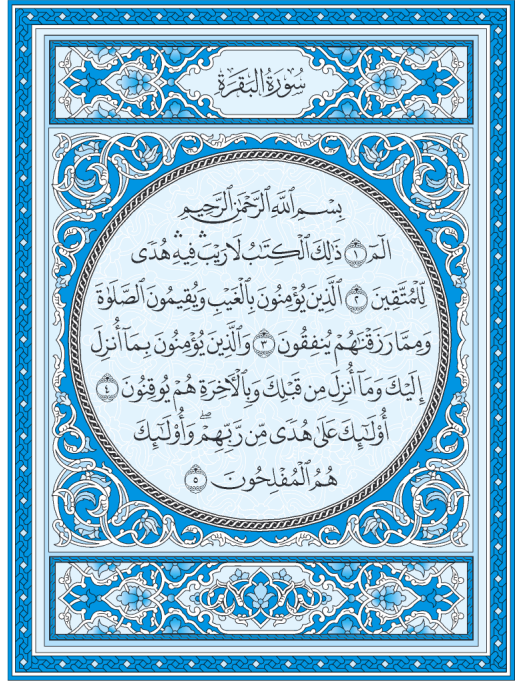 سُورَةُ الْبَقَرَةِ
بِسْمِ ٱللَّهِ ٱلرَّحْمَٰنِ ٱلرَّحِيمِ
الٓمٓ ١ ذَٰلِكَ ٱلْكِتَٰبُ لَا رَيْبَۛ فِيهِۛ هُدًى
لِّلْمُتَّقِينَ ٢ ٱلَّذِينَ يُؤْمِنُونَ بِٱلْغَيْبِ وَيُقِيمُونَ ٱلصَّلَوٰةَ
وَمِمَّا رَزَقْنَٰهُمْ يُنفِقُونَ ٣ وَٱلَّذِينَ يُؤْمِنُونَ بِمَآ أُنزِلَ
إِلَيْكَ وَمَآ أُنزِلَ مِن قَبْلِكَ وَبِٱلْءَاخِرَةِ هُمْ يُوقِنُونَ ٤
أُو۟لَٰٓئِكَ عَلَىٰ هُدًى مِّن رَّبِّهِمْۖ وَأُو۟لَٰٓئِكَ
هُمُ ٱلْمُفْلِحُونَ ٥